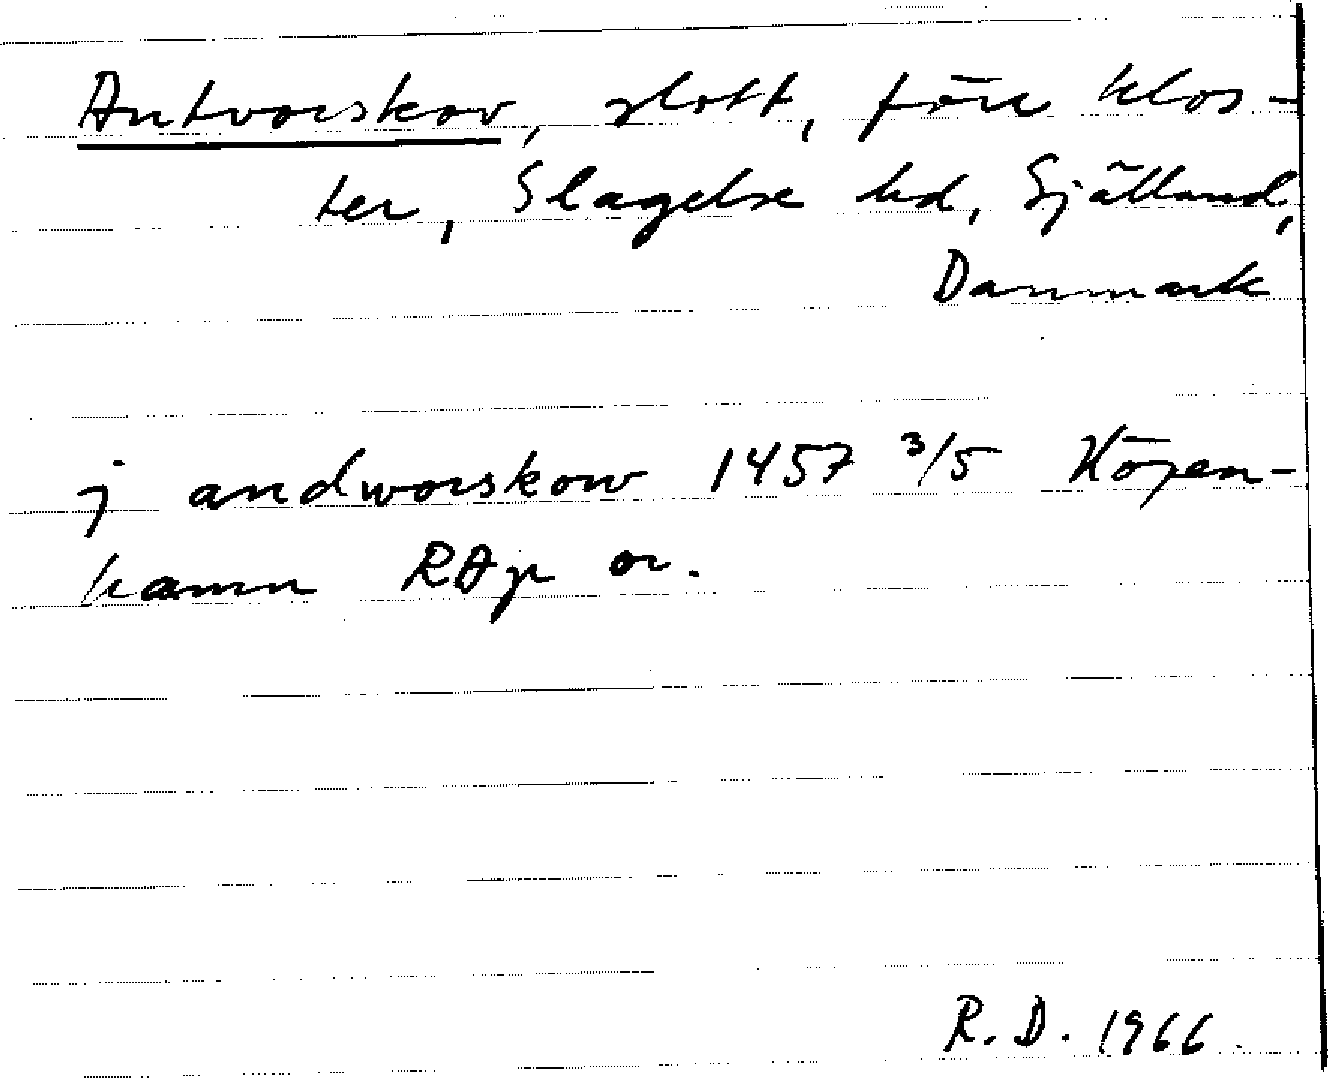 Antvorskov, slott, förr klos-
ter, Slagelse hd, Själland,
Danmark
j andworskow 1457 3/5 Köpen-
hamn RAp or.
R.D. 1966